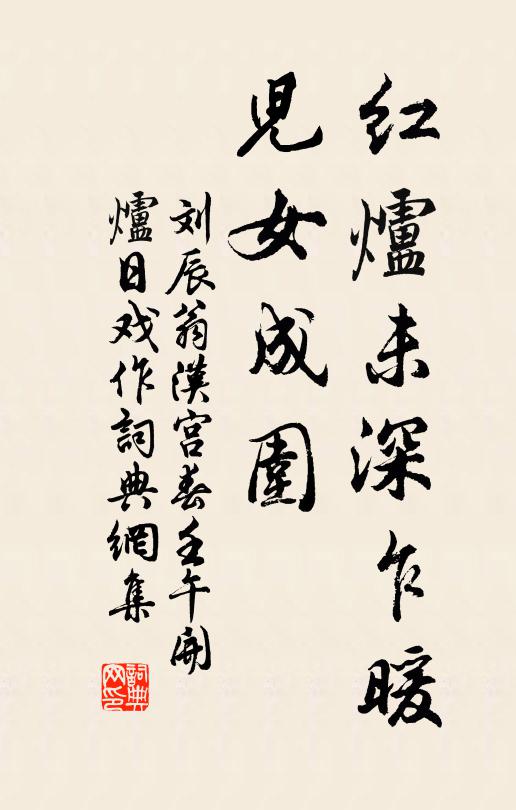 红爐未深乍暖
児女成圍
刘辰翁漢宫春壬午開
爐日戏作詞典網集
詞典网印